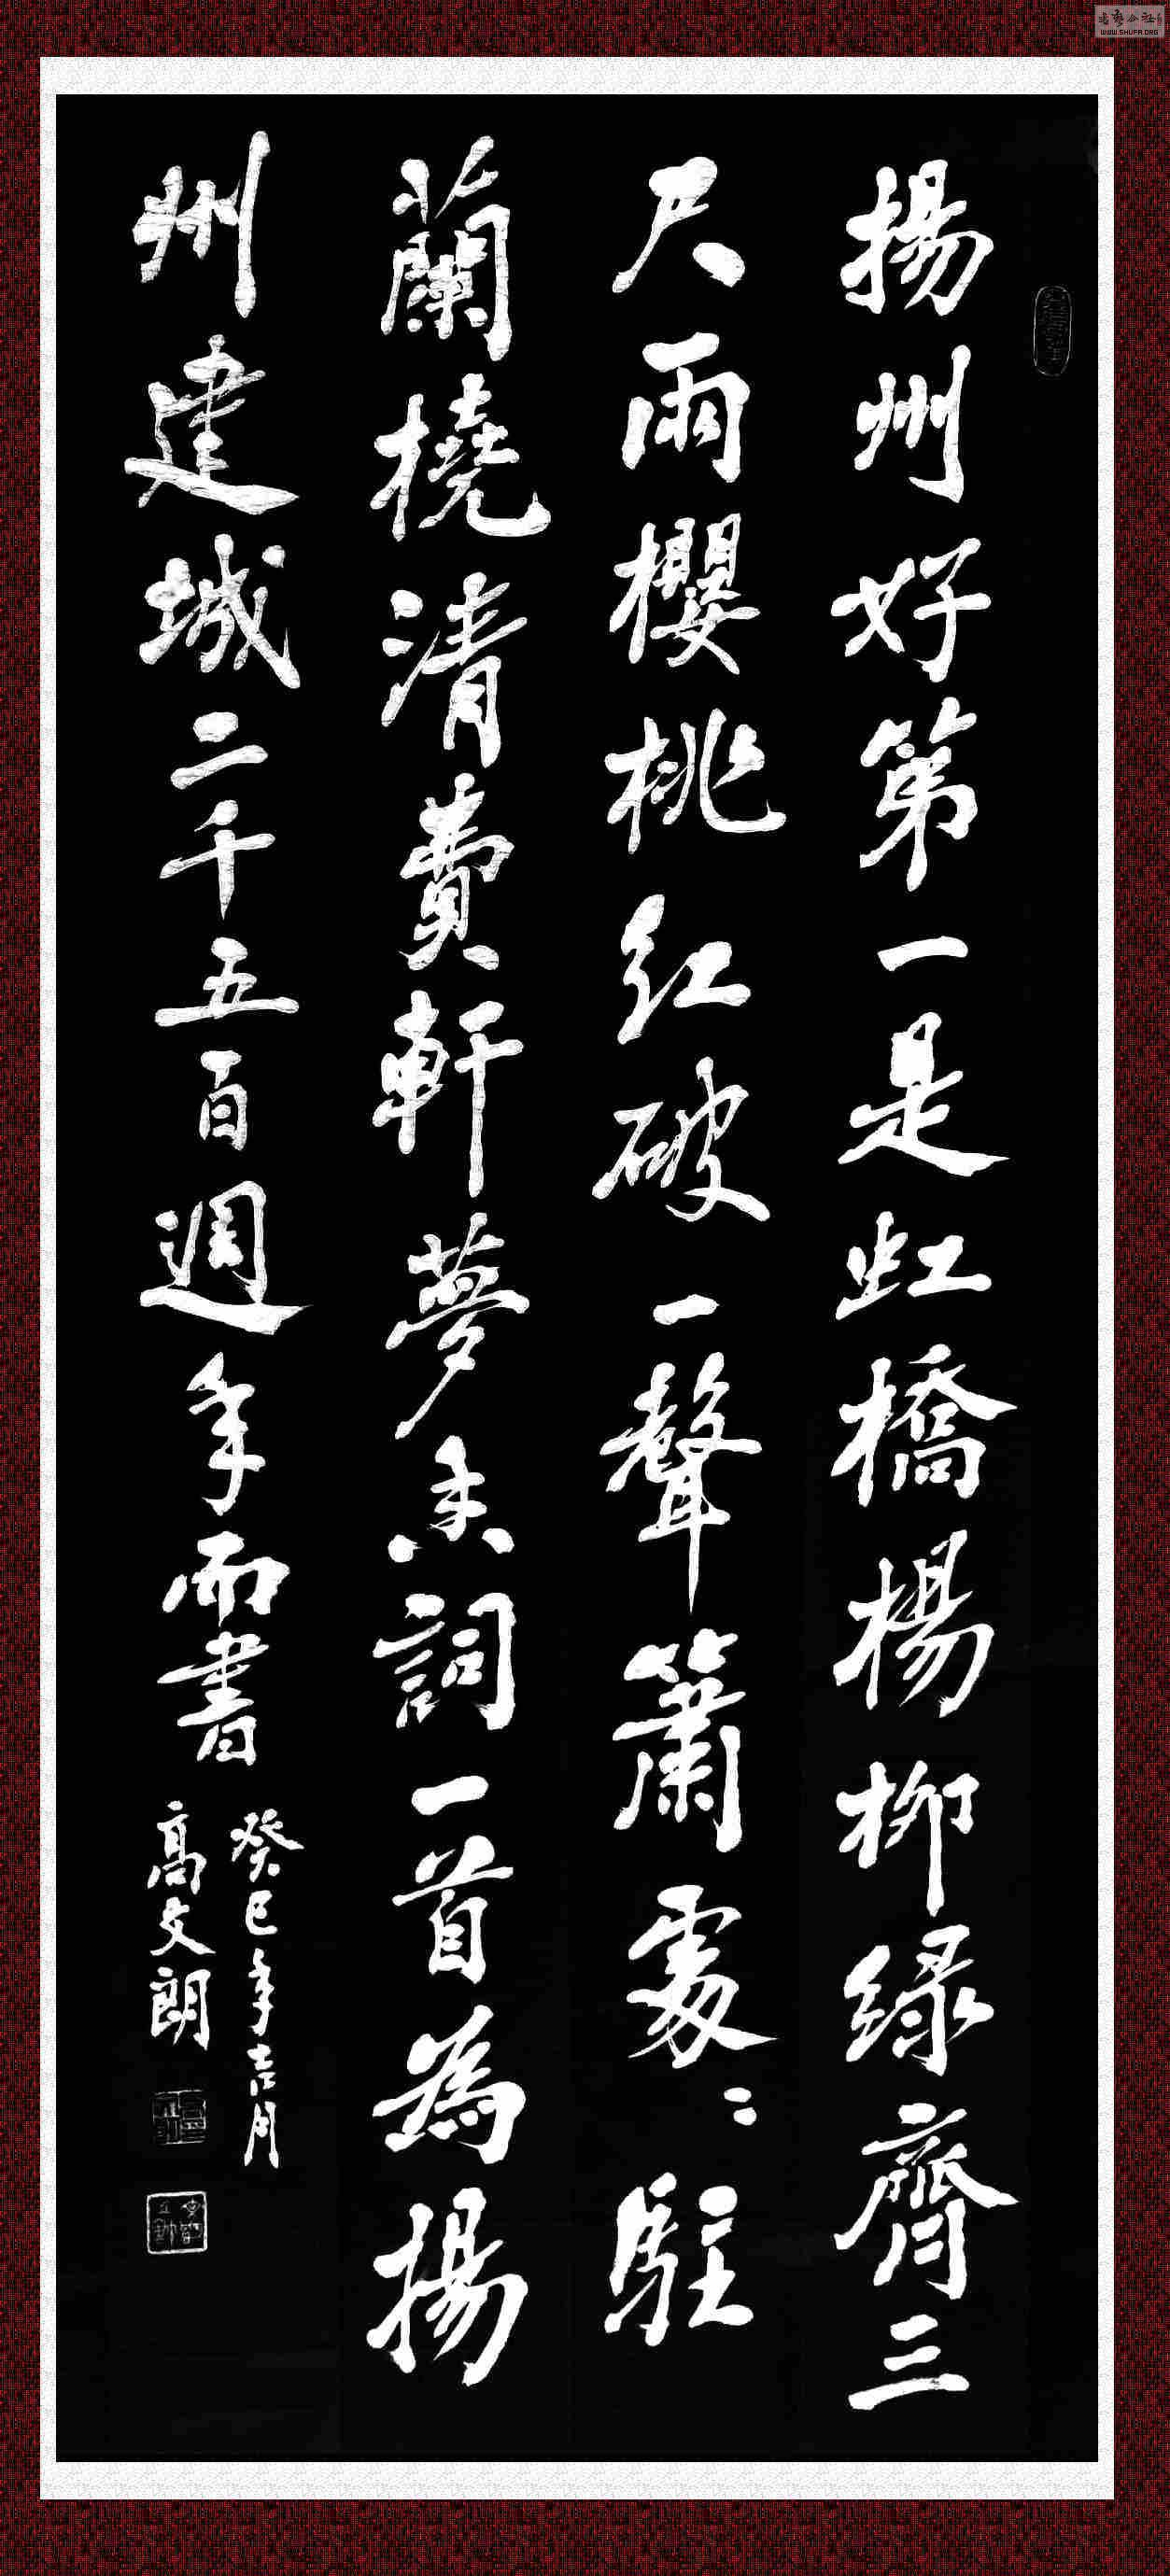 揚州好第一是虹橋楊柳綠齊三
尺雨櫻桃紅破一聲簫處〻駐
蘭橈清費軒夢香詞一首為揚
州建城二千五百週年而書
癸巳年吉月
高文朗
WWW.SHUFA.ORG